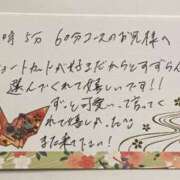 時5分 60分コースのお兄様へ
ショートカットが好きだからとすずらん
選んでくれて嬉しいです!!
ずっと可愛いって言ってく
れて嬉しかった
また来てね!